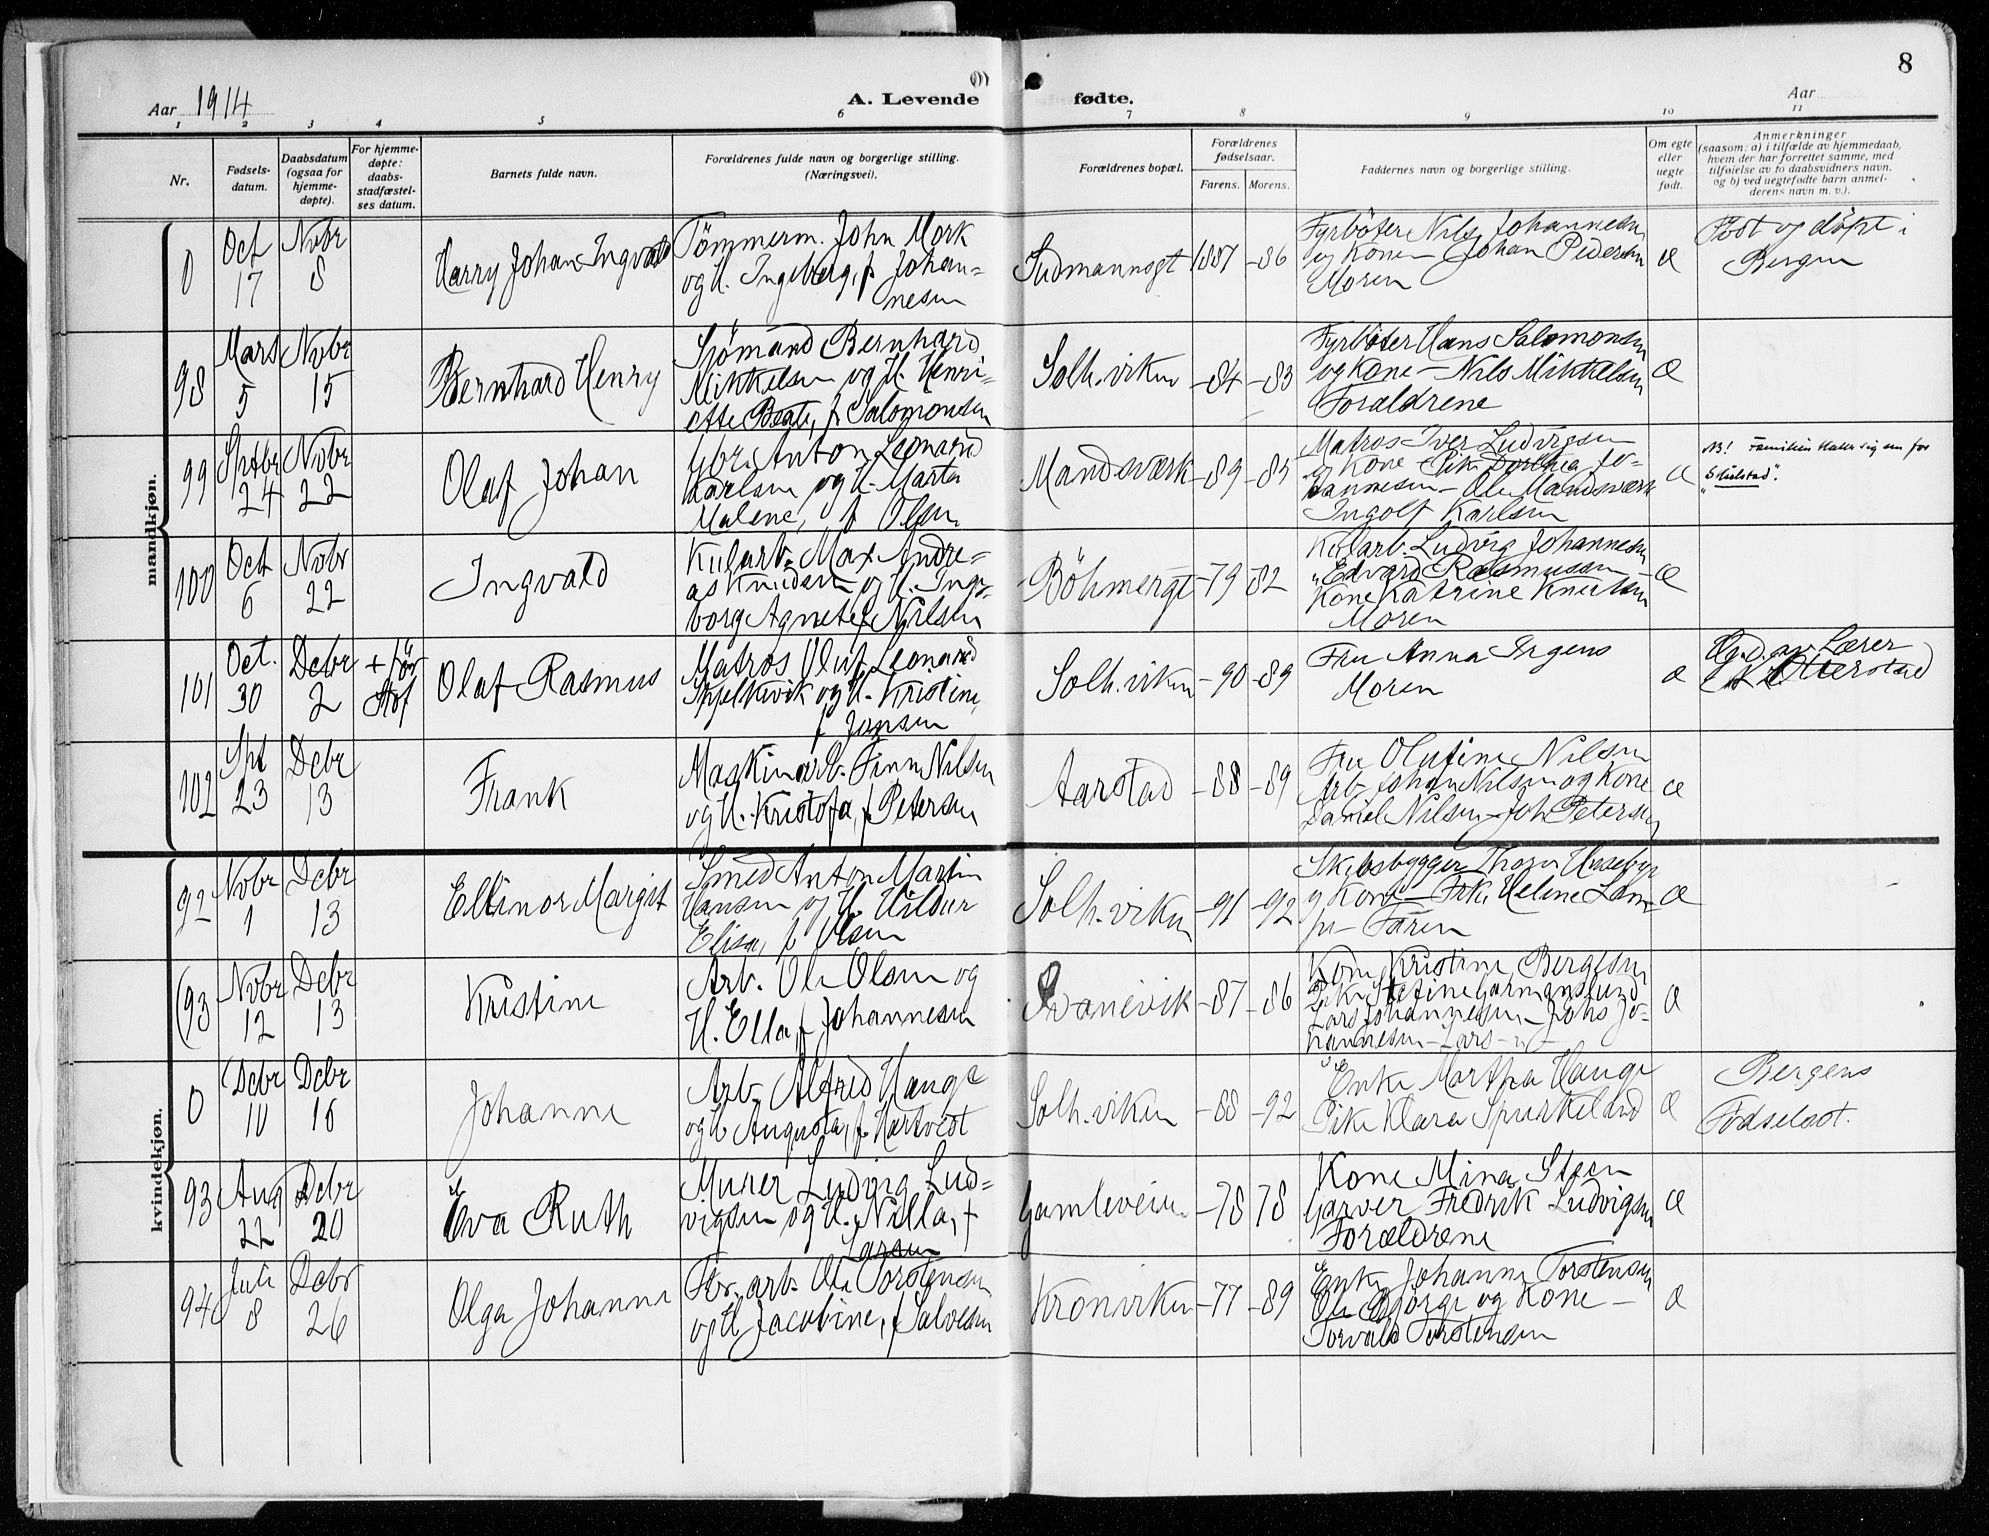 8
Aar 1914
A. Levende fødte.
Aar
1 2 3 4 5 6 7 8 9 10 11
Nr.
Fødsels-
datum.
Daabsdatum
(ogsaa for
hjemme-
døpte).
For hjemme-
døpte:
daabs-
stadfæstel-
ses datum.
Barnets fulde navn.
Forældrenes fulde navn og borgerlige stilling.
(Næringsvei).
Forældrenes bopæl.
Forældrenes
fødselsaar.
Farens. Morens.
Faddernes navn og borgerlige stilling.
Om egte
eller
uegte
født.
Anmerkninger
(saasom: a) i tilfælde av hjemmedaab,
hvem der har forrettet samme, med
tilføielse av to daabsvidners navn,
og b) ved uegtefødte barn anmel-
derens navn m. v.).
mandkjøn.
0
Oct
17
Novbr
8
Harry Johan Ingvald
Tömmerm. John Mork
og H. Ingeborg, f Johan=
nesen
Sudmannsgt
1887
-86
Fyrböter Nils Johannesen
og Kone - Johan Pedersen
Moren
æ
Födt og döpt i
Bergen
98
Mars
5
Novbr
15
Bernhard Henry
Sjömand Bernhard
Mikkelsen og H. Henri=
ette Beate, f Salomonsen
Solh.viken
-84
-83
Fyrböter Hans Salomonsen
og Kone - Nils Mikkelsen
Forældrene
æ
99
Sptbr
24
Novbr
22
Olaf Johan
Gbr. Anton Leonard
Karlsen og H. Marta
Malene, f Olsen
Mandsværk
-89
-85
Matros Iver Ludvigsen
og Kone Pik. Dorthea Jo-
hannesen - Ole Mandsværk
Ingolf Karlsen
æ
NB! Familien kaller sig nu for
"Skulstad".
100
Oct
6
Novbr
22
Ingvald
Kularb. Max Andre=
as Knudsen og H. Inge-
borg Agnete f Nilsen
Böhmergt
-79
-82
Kularb. Ludvig Johannesen
" Edvard Rasmussen -
Kone Katrine Knudsen
Moren
æ
101
Oct.
30
Debr
2
+ för
Stf
Olaf Rasmus
Matros Oluf Leonard
Skjelkvik og H. Kristine,
f Jansen
Solh.viken
-90
-89
Fru Anna Irgens
Moren
æ
Lærer
Otterstad
102
Spt
23
Debr
13
Frank
Maskinarb. Finn Nilsen
og H. Kristofa, f Petersen
Aarstad
-88
-89
Fru Olufine Nilsen
Arb. Johan Nilsen og Kone
Daniel Nilsen - Joh Petersen
æ
kvindekjøn.
92
Novbr
1
Debr
13
Ellinor Margit
Smed Anton Martin
Hansen og H. Hildur
Elisa, f Olsen
Solh.viken
-91
-92
Skibsbygger Thor
og Kone - Frk. Helene Lam-
pe - Faren
æ
(93
Novbr
12
Debr
13
Kristine
Arb. Ole Olsen og
H. Ella, f Johannesen
Svanevik
-87
-86
Kone Kristine Bergesen
Pike Stefine Garmanslund
Lars Johannesen - Johs Jo-
hannesen - Lars - " -
æ
0
(Debr
10
Debr
16
Johanne
Arb. Alfred Hauge
og H Augusta, f Hartvedt
Solh.viken
-88
-92
Enke Martha Hauge
Pike Klara Spurkeland
æ
Bergens
Fødselsst.
93
Aug
22
Debr
20
Eva Ruth
Murer Ludvig Lud=
vigsen og H. Nilla, f
Larsen
Gamleveien
-78
78
Kone Mina Steen
Garver Fredrik Ludvigsen
Forældrene
æ
94
Juli
8
Debr
26
Olga Johanne
For. arb. Ole Torstensen
og H Jacobine, f Salvesen
Kronviken
-77
-89
Enke Johanne Torstensen
Ole Bjorge og Kone -
Torvald Torstensen
æ